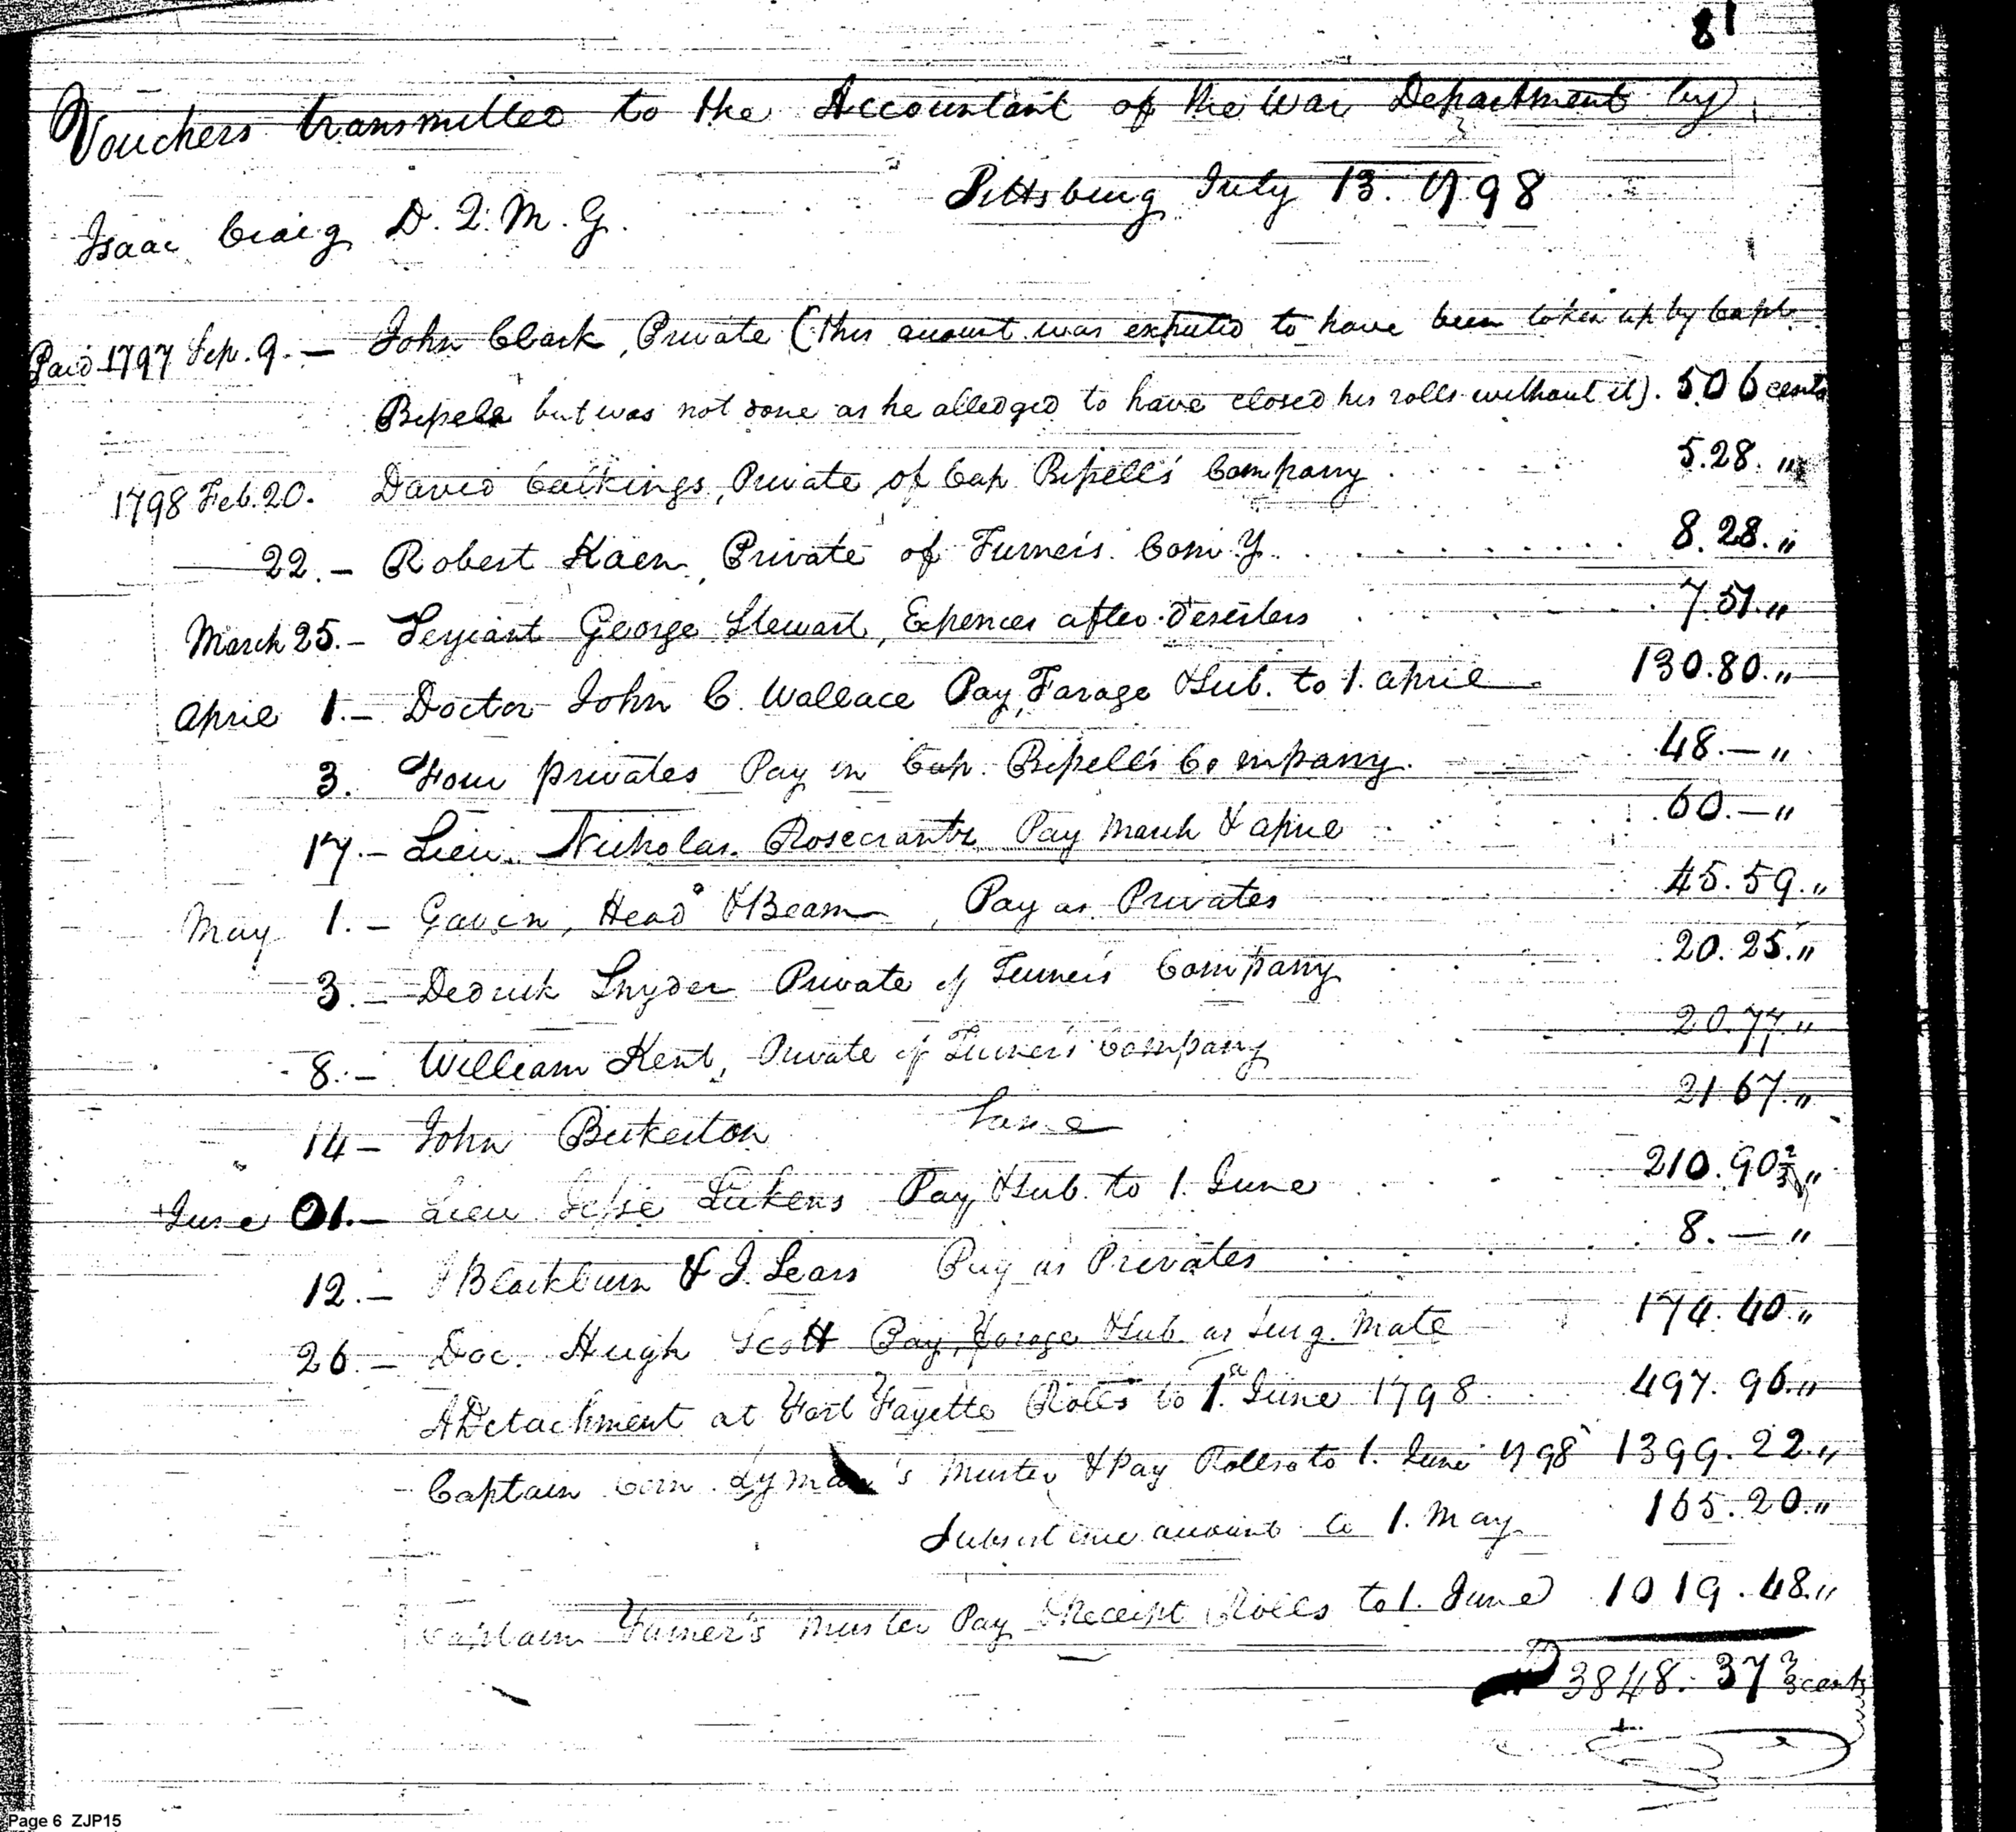 81
Vouchers transmitted to the Accountant of the War Department by
Isaac Craig D. Q. M. G. Pittsburg July 13. 1798
Paid 1797 Sep. 9. — John Clark, Private (this amount was expected to have been taken up by Capt.
Bissells but was not done as he alledged to have closed his rolls without it). 5.06 cents
1798 Feb. 20. David Private of Cap Bissell's Company 5.28. "
22. — Robert Kaen, Private of Turner's Com.y 8.28. "
March 25. — Serjeant George Stewart, Expences after Deserters 7.51. "
April 1. — Doctor John C. Wallace Pay, Farage & Sub. to 1. april 130.80. "
3. Four privates Pay in Cap. Bissell's Company. 48. — "
17. — Lieu. Nicholas Rosecrantz Pay March & april 60. — "
May 1. — Gavin, Head & Beam, Pay as Privates 45.59. "
3. — Dedrick Snyder Private of Turner's Company 20.25. "
8. — William Kent, Private of Turner's Company 20.77. "
14 — John Bickerton Same 21.67. "
June 01. — Lieu Jesse Lukens Pay & Sub. to 1. June 210.90 2/3 "
12. — J Blackburn & J. Sears Pay as Privates 8. — "
26. — Doc. Hugh Scott Pay, Forage & Sub as Surg. Mate 174.40. "
A Detachment at Fort Fayette Rolls to 1.st June 1798 497.96. "
Captain Corn. Lyman's Muster & Pay Rolls to 1. June 1798 1399.22. "
Subsistence amount to 1. May 165.20. "
Captain Turner's Muster Pay & Receipt Rolls to 1. June 1019.48. "
D 3848.37 2/3 cents
Page 6 ZJP15